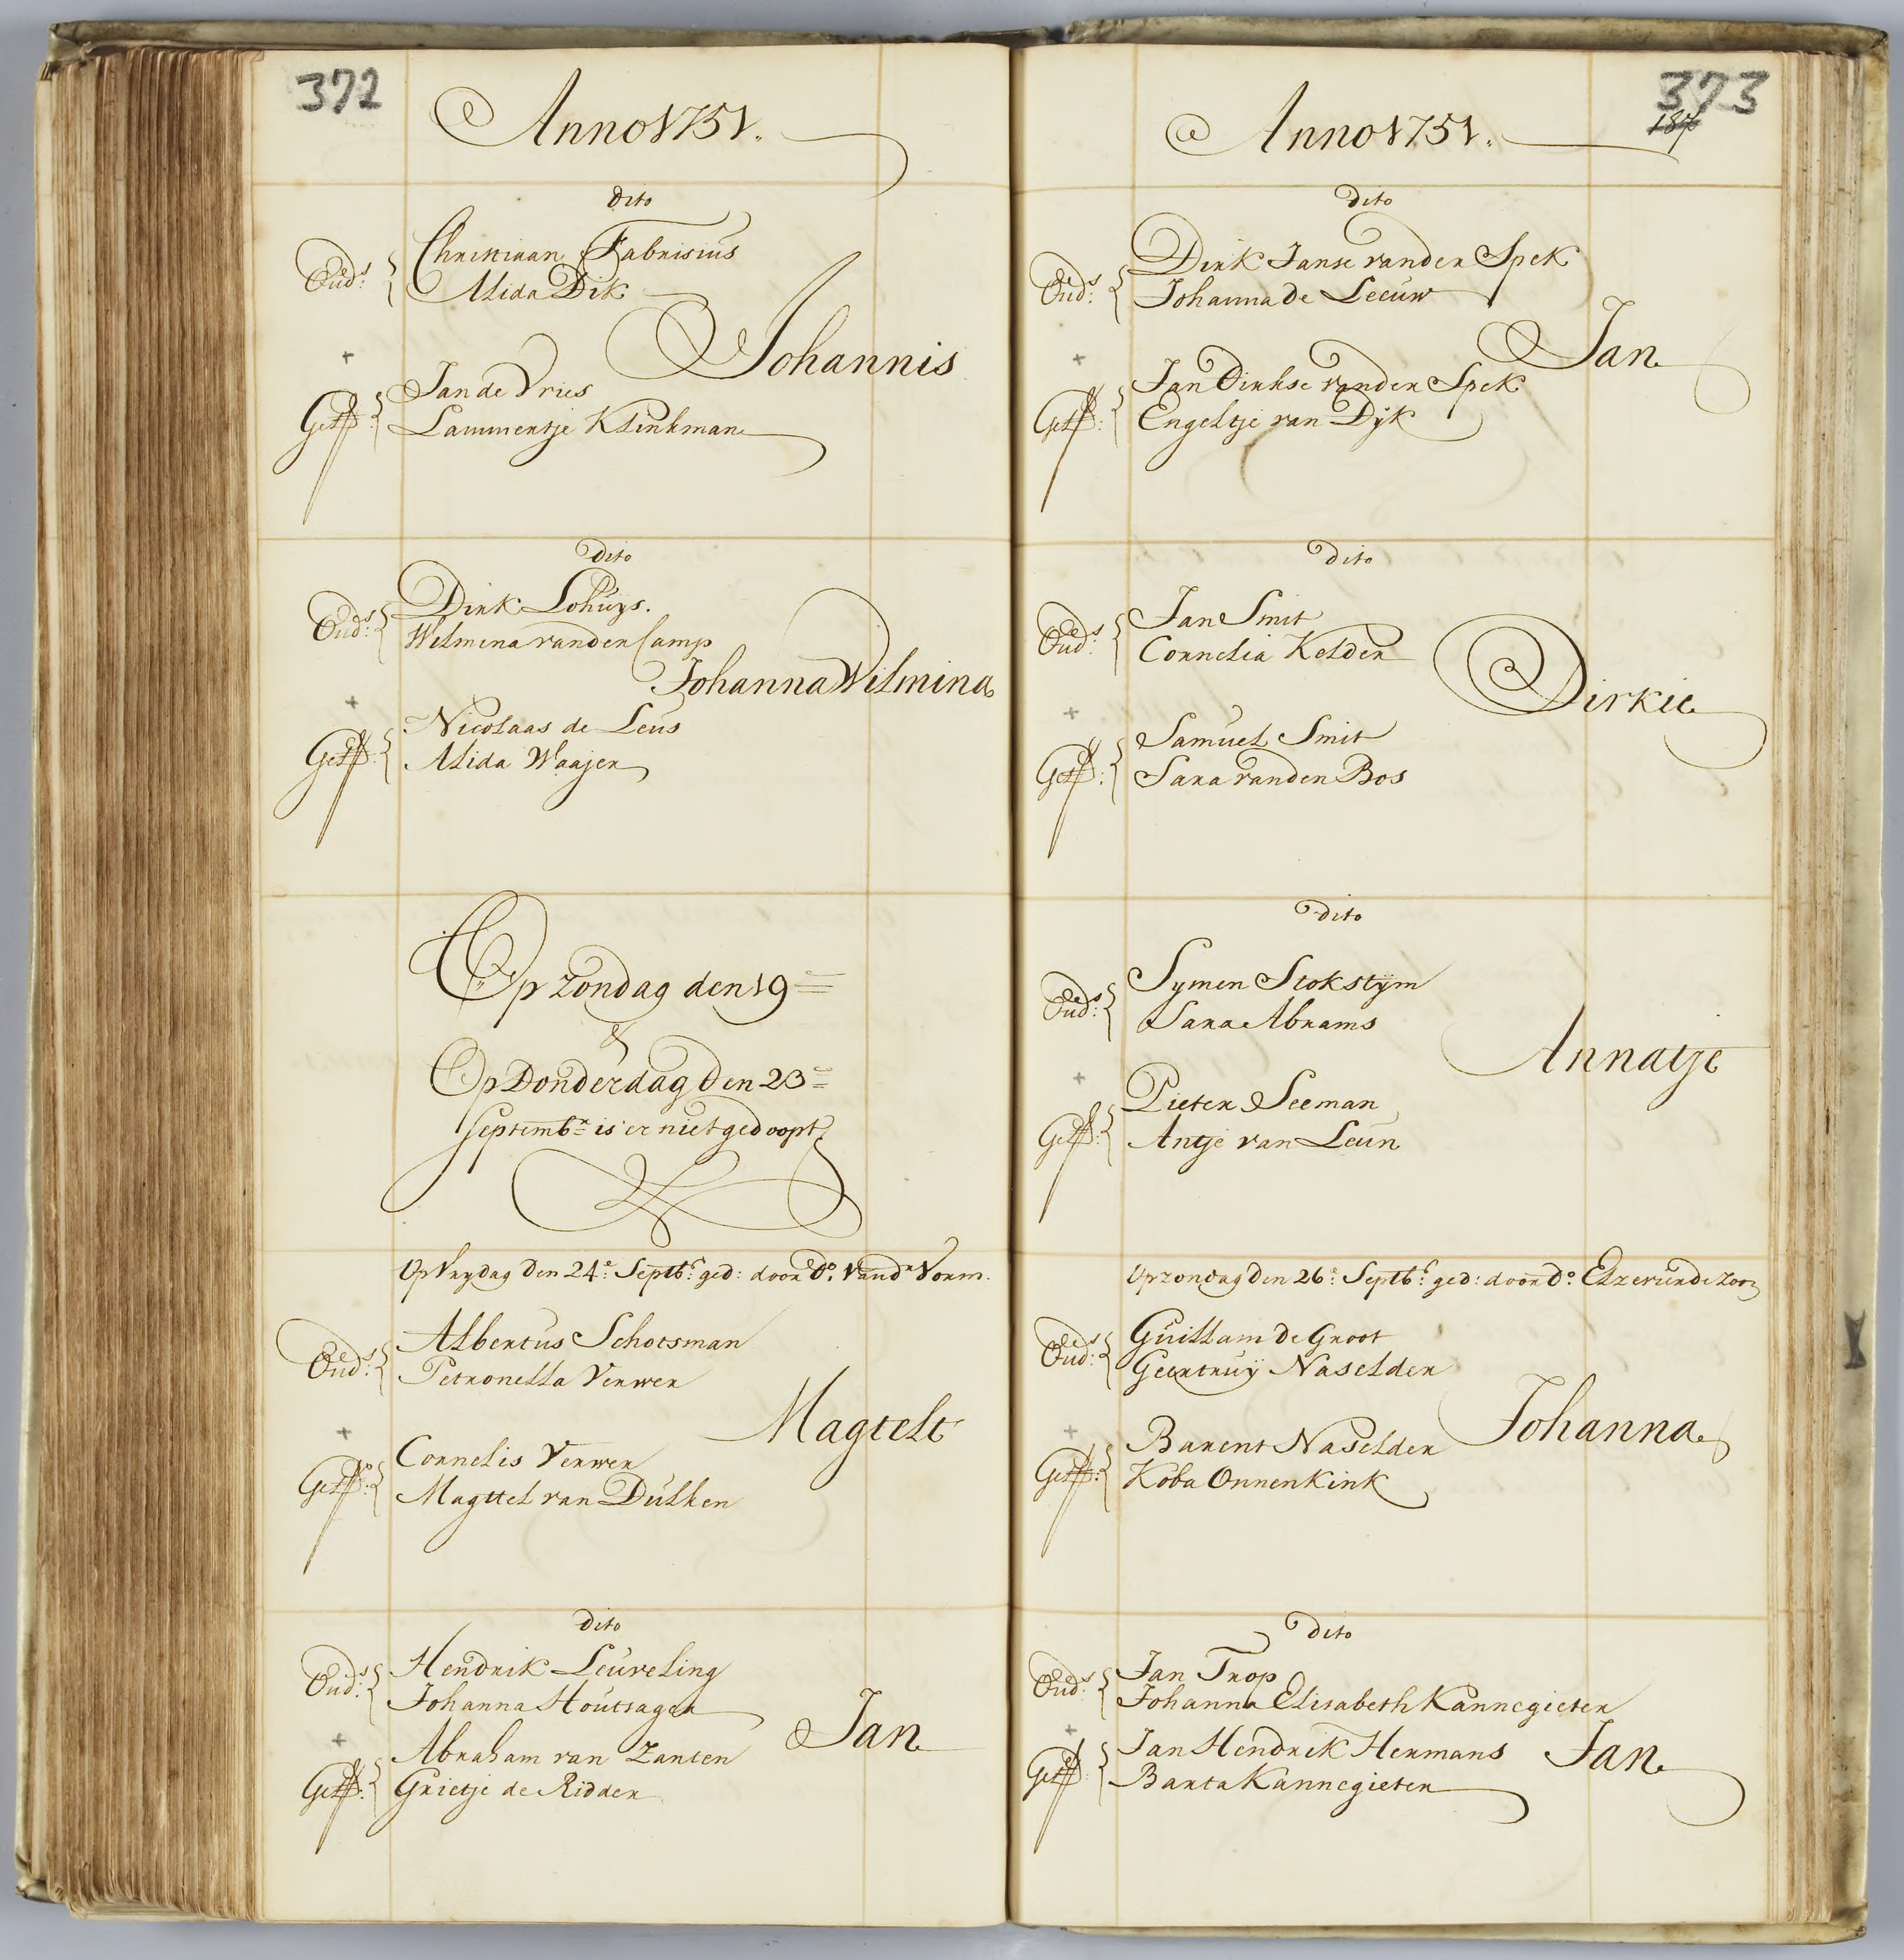 372
Anno 1751.
dito
Oud.s Christiaan Fabrisius
Alida Dik
Johannis
+
Get: Jan de Vries
Lammertje Klinkman
dito
Oud.s Dirk Lohuys.
Wilmina van den Camp
Johanna Wilmina
+
Get: Nicolaas de Leus
Alida Waajer
Op Zondag den 19
&
Op Donderdag den 23
Septemb.r is er niet gedoopt
Op Vrydag den 24.e Septb.r ged: door D.o vand.r Vorm.
Oud.s Albertus Schotsman
Petronella Verwer
Magtelt
+
Get: Cornelis Verwer
Magttel van Dulken
dito
Oud.s Hendrik Leuveling
Johanna Houtsager
Jan
+
Get: Abraham van Zanten
Grietje de Ridder
373
187
Anno 1751.
dito
Oud.s Dirk Janse van der Spek
Johanna de Leeuw
Jan
+
Get: Jan Dirkse van der Spek
Engeltje van Dyk
dito
Oud.s Jan Smit
Cornelia Kelder
Dirkie
+
Get: Samuel Smit
Sara van den Bos
dito
Oud.s Symen Stokstijm
Sara Abrams
Annatje
+
Get: Pieter Seeman
Antje van Leun
Op zondag den 26.e Septb.r ged: door D.o Elzevier de Zoon
Oud.s Guillam de Groot
Geertruÿ Naselder
Johanna
+
Get: Barent Naselder
Koba Onnenkink
dito
Oud.s Jan Trop
Johanna Elisabeth Kannegieter
+
Get: Jan Hendrik Hermans
Jan
Barta Kannegieter